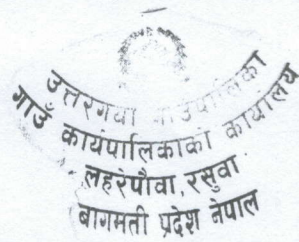 उत्तरगया गाउँपालिका
गाउँ कार्यपालिकाको कार्यालय
लहरेपौवा, रसुवा
बागमती प्रदेश नेपाल